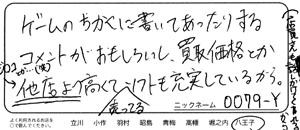 ゲームのちかくに書いてあったりする
コメントがおもしろいし、買取価格とか
他店より高くて、ソフトも充実しているから。
売ってる
ニックネーム 0079-Y
よく利用されるお店を○で囲んでください。
立川 小作 羽村 昭島 青梅 高幡 堀之内 八王子